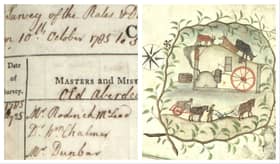 Survey of the Rates & D
on 10th October 1785 to 5
C
Date
of
Survey.
Masters and Mist
Old Aberde
1785
Mr Rodrick McLeod
Dr Wm Chalmer
Mr Dunbar